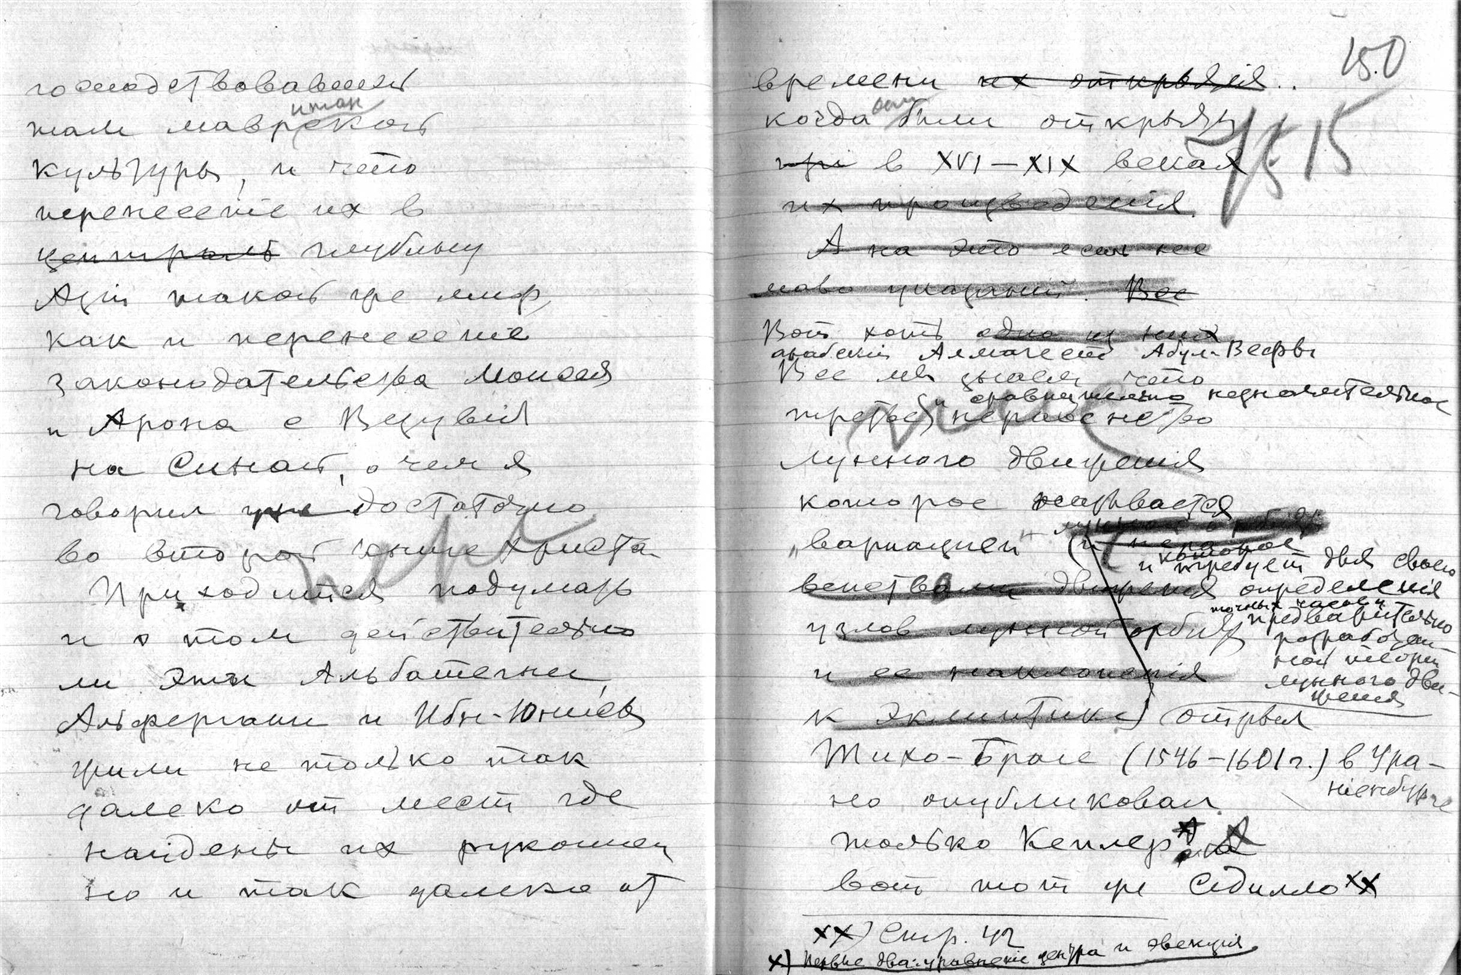 господствовавшей
там маврской
культуры, и что
перенесение их в
центральн глубину
Азии такой же миф,
как и перенесение
законодательства Моисея
и Арона с Везувия
на Синай, о чем я
говорил уже достаточно
во второй книге Христа
Приходится подумать
и о том действительно
ли эти Альбатегни,
Альфергани и Ибн-Юнисы
жили не только так
далеко от мест где
найдены их рукописи
но и так далеко от
150
времени их открытия..
когда были открыты
при в XVI–XIX веках
их произведения
А на это есть не
мало указаний. Все
Вот хоть одно из них
арабский Алмагест Абул-Вефы
Все мы знаем, что
и сравнительно незначительное
третье неравенство
лунного движения
которое называется
„вариацией“
и требует для своего
определения
точных часов и
предварительно
разработан-
ной теории
лунного дви-
жения
узлов лунной орбиты
и ее наклонения
к эклиптике) открыл
Тихо-Браге (1546–1601 г.) в Ура-
ниенбурге
но опубликовал
только Кеплер
вот тот же Седилло xx
xx) Стр. 42
x) Первые два: уравнение центра и эвекция